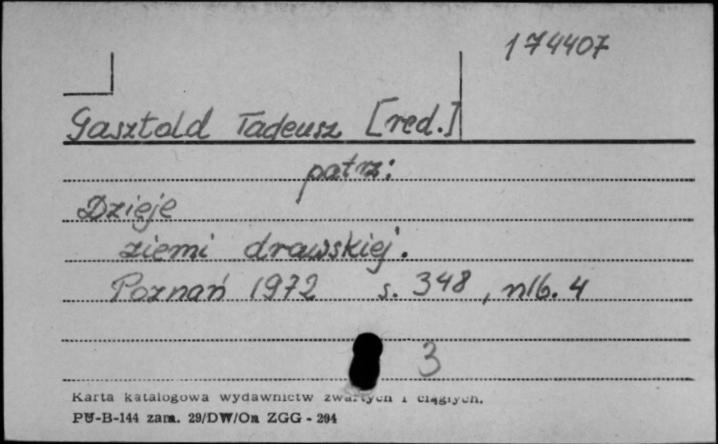 174407
Gasztold Tadeusz [red.]
patrz:
Dzieje
ziemi drawskiej.
Poznań 1972 s. 348, nlb. 4
3
Karta katalogowa wydawnictw zwartych i ciągłych.
PU-B-144 zam. 29/DW/On ZGG - 294